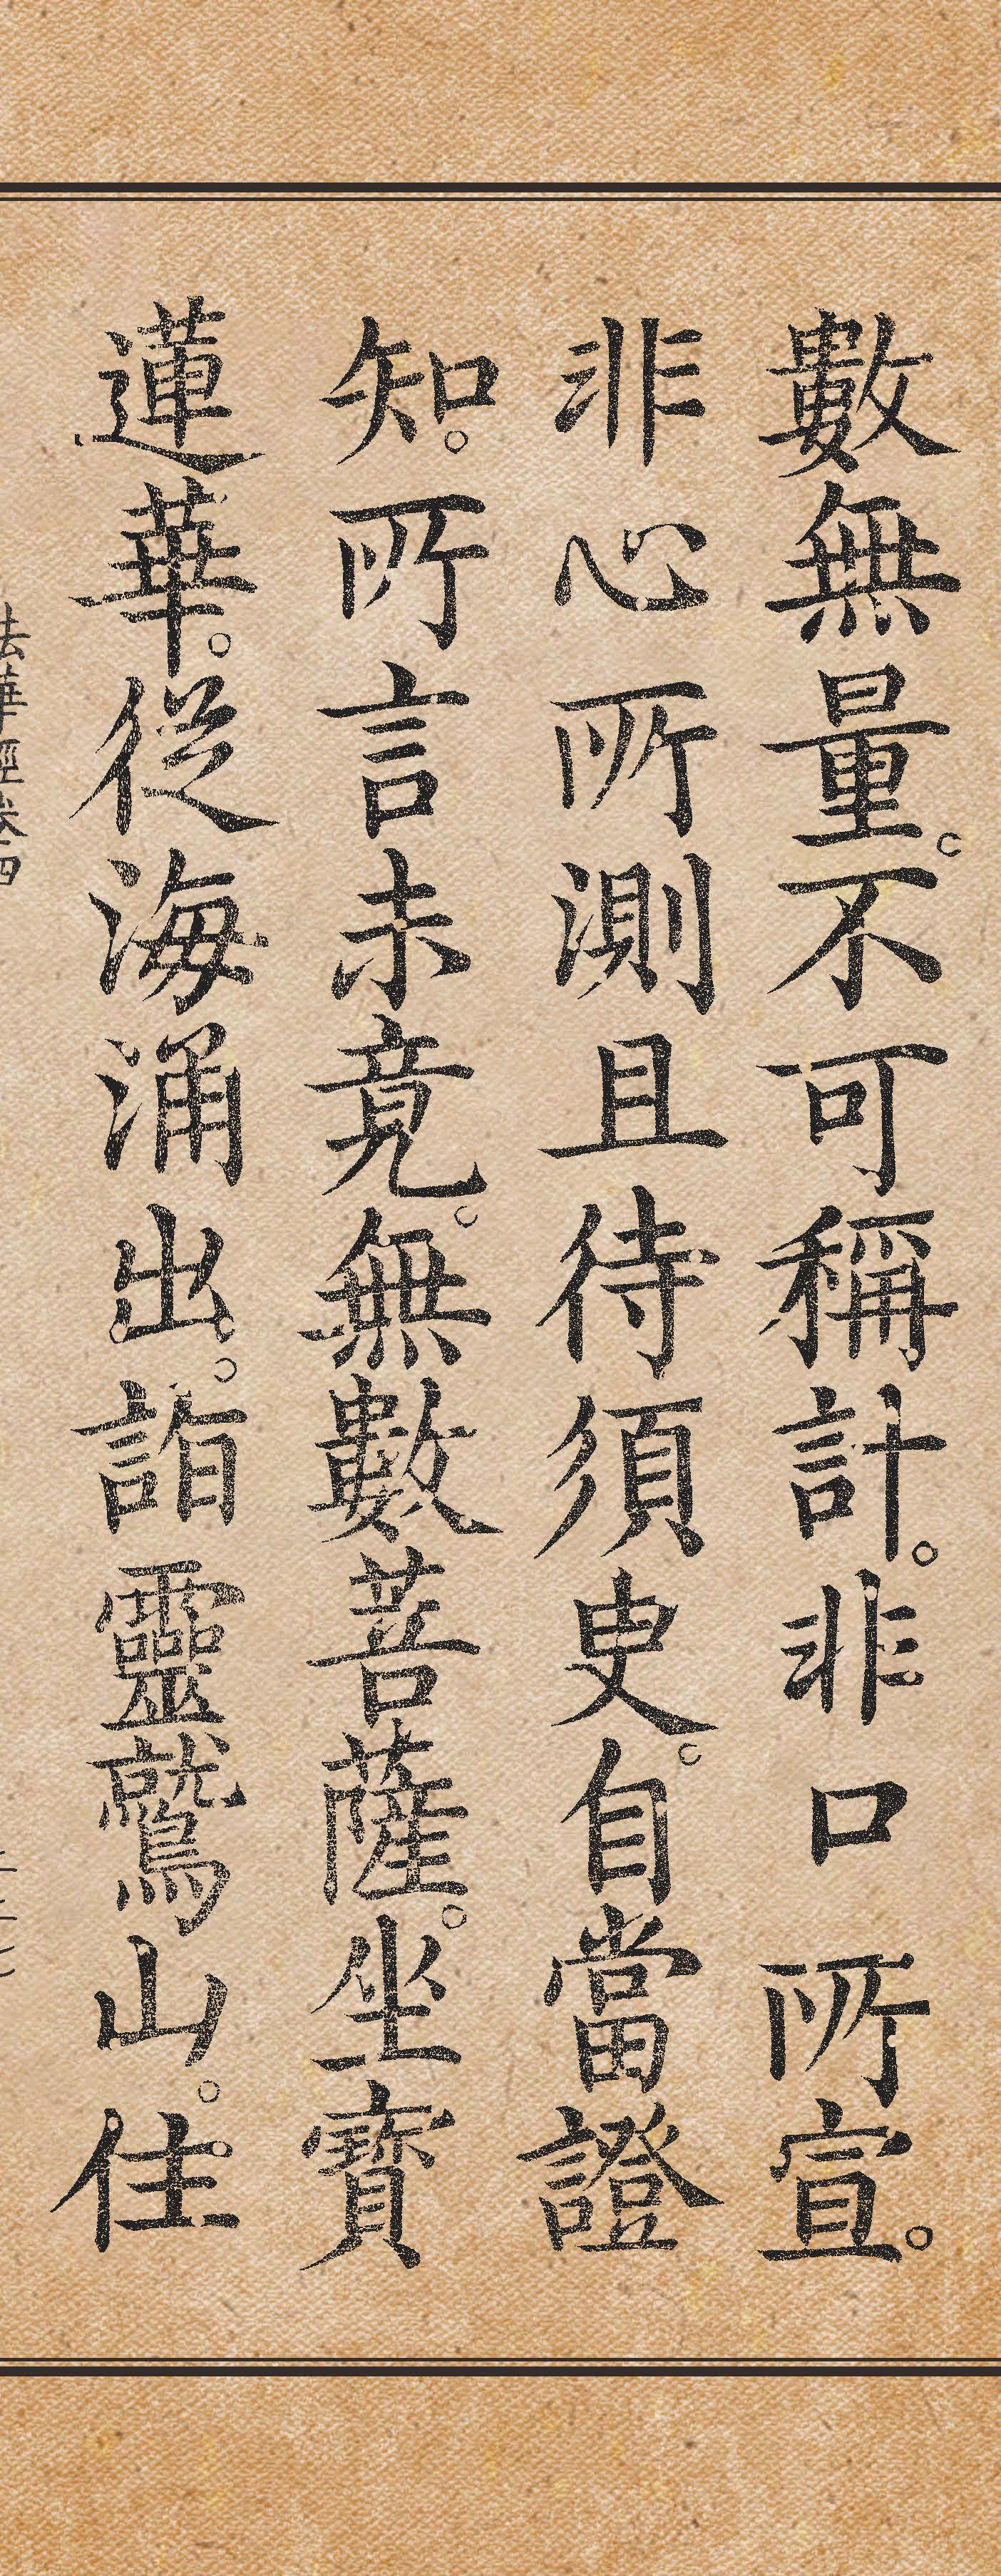 數無量。不可稱計。非口所宣。
非心所測且待須臾。自當證
知。所言未竟。無數菩薩。坐寶
蓮華。從海涌出。詣靈鷲山。住
法華經卷四